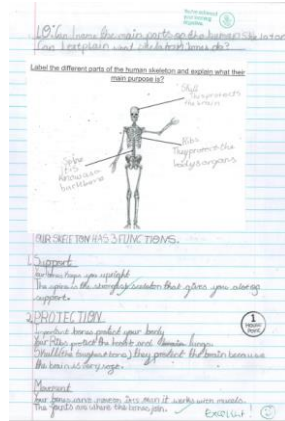 LO: Can I name the main parts of the human skeleton
Can I explain what skeleton bones do?
Label the different parts of the human skeleton and explain what their
main purpose is?
Skull
This protects
the brain
Ribs
They protect the
body's organs
Spine
It is
back bone
OUR SKELETON HAS 3 FUNCTIONS.
1. Support
keeps you upright
The spine is the strongest skeleton that gives you
support.
2. PROTECTION
Important bones protect your body
Your Ribs protect the heart and lungs
Skull (the toughest bone) they protect the brain because
the brain is very
1
House
Point
Movement
it works with
The joints are where the bones join.
Excellent!